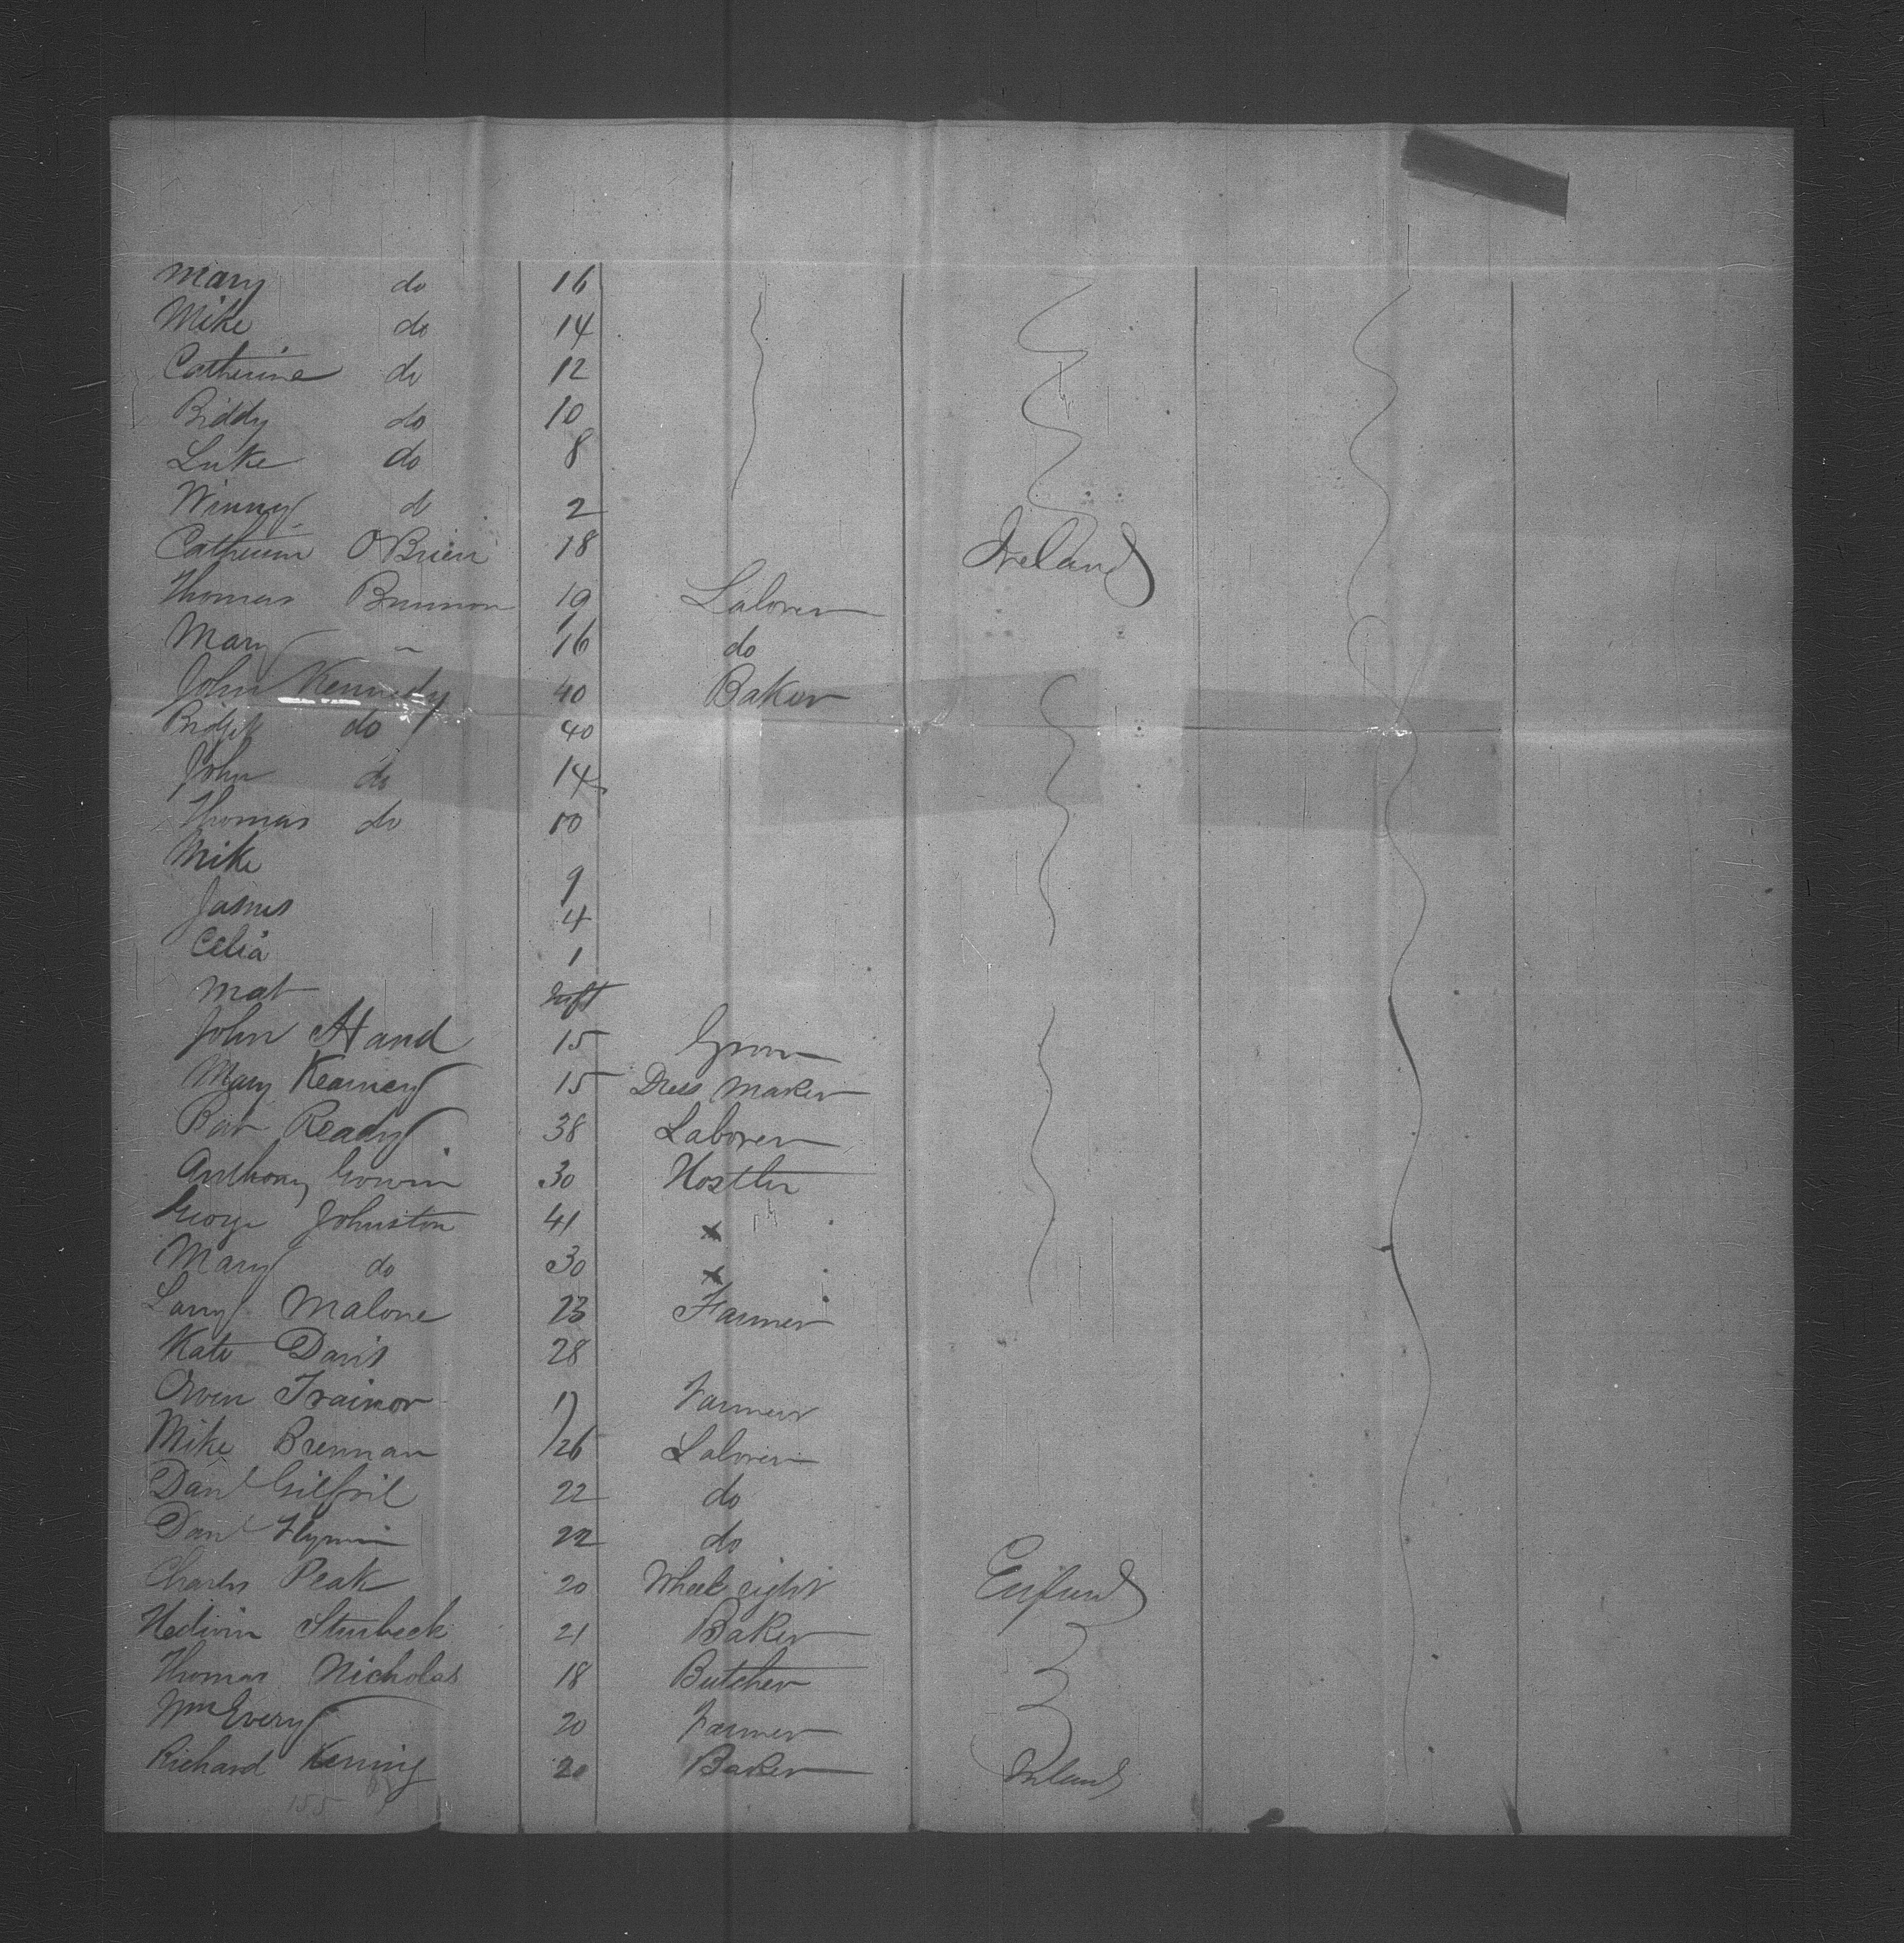 Mary do 16
Mike do 14
Catherine do 12
Biddy do 10
Luke do 8
Winny do 2
Catherine O'Brien 18 Ireland
Thomas Brennon 19 Laborer
Mary " 16 do
John Kennedy 40 Baker
Bridget do 40
John do 14
Thomas do 10
Mike 9
James 4
Celia 1
Mat Inft
John Hand 15 Groom
Mary Kearney 15 Dress Maker
Ready 38 Laborer
Anthony 30 Hostler
George Johnston 41 x
Mary do 30 x
Larry Malone 23 Farmer
Kate Davis 28
Owen Trainor 17 Farmer
Mike Brennan 26 Laborer
Danl 22 do
Danl Flynn 22 do
Charles Peak 20 Wheelright England
Sturbeck 21 Baker
Thomas Nicholas 18 Butcher
Wm Every 20 Farmer
Richard 20 Baker Ireland
155